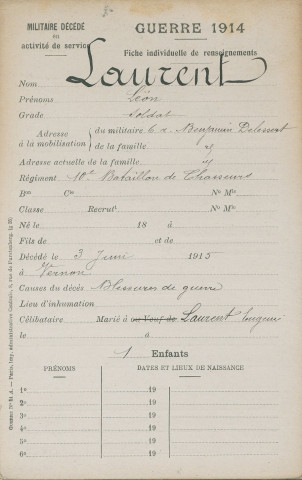 MILITAIRE DÉCÉDÉ
en
activité de service
GUERRE 1914
Fiche individuelle de renseignements
Nom Laurent
Prénoms Léon
Grade Soldat
Adresse à la mobilisation { du militaire 6 r. Benjamin Delessert
de la famille "
Adresse actuelle de la famille "
Régiment 10e Bataillon de Chasseurs
Bon Cie No Mle
Classe Recrut No Mle
Né le 18 à
Fils de et de
Décédé le 3 Juin 1915
à Vernon
Causes du décès Blessures de guerre
Lieu d'inhumation
Célibataire Marié à ou Veuf de Laurent Eugénie
le à
1 Enfants
PRÉNOMS DATES ET LIEUX DE NAISSANCE
1o 19
2o 19
3o 19
4o 19
5o 19
6o 19